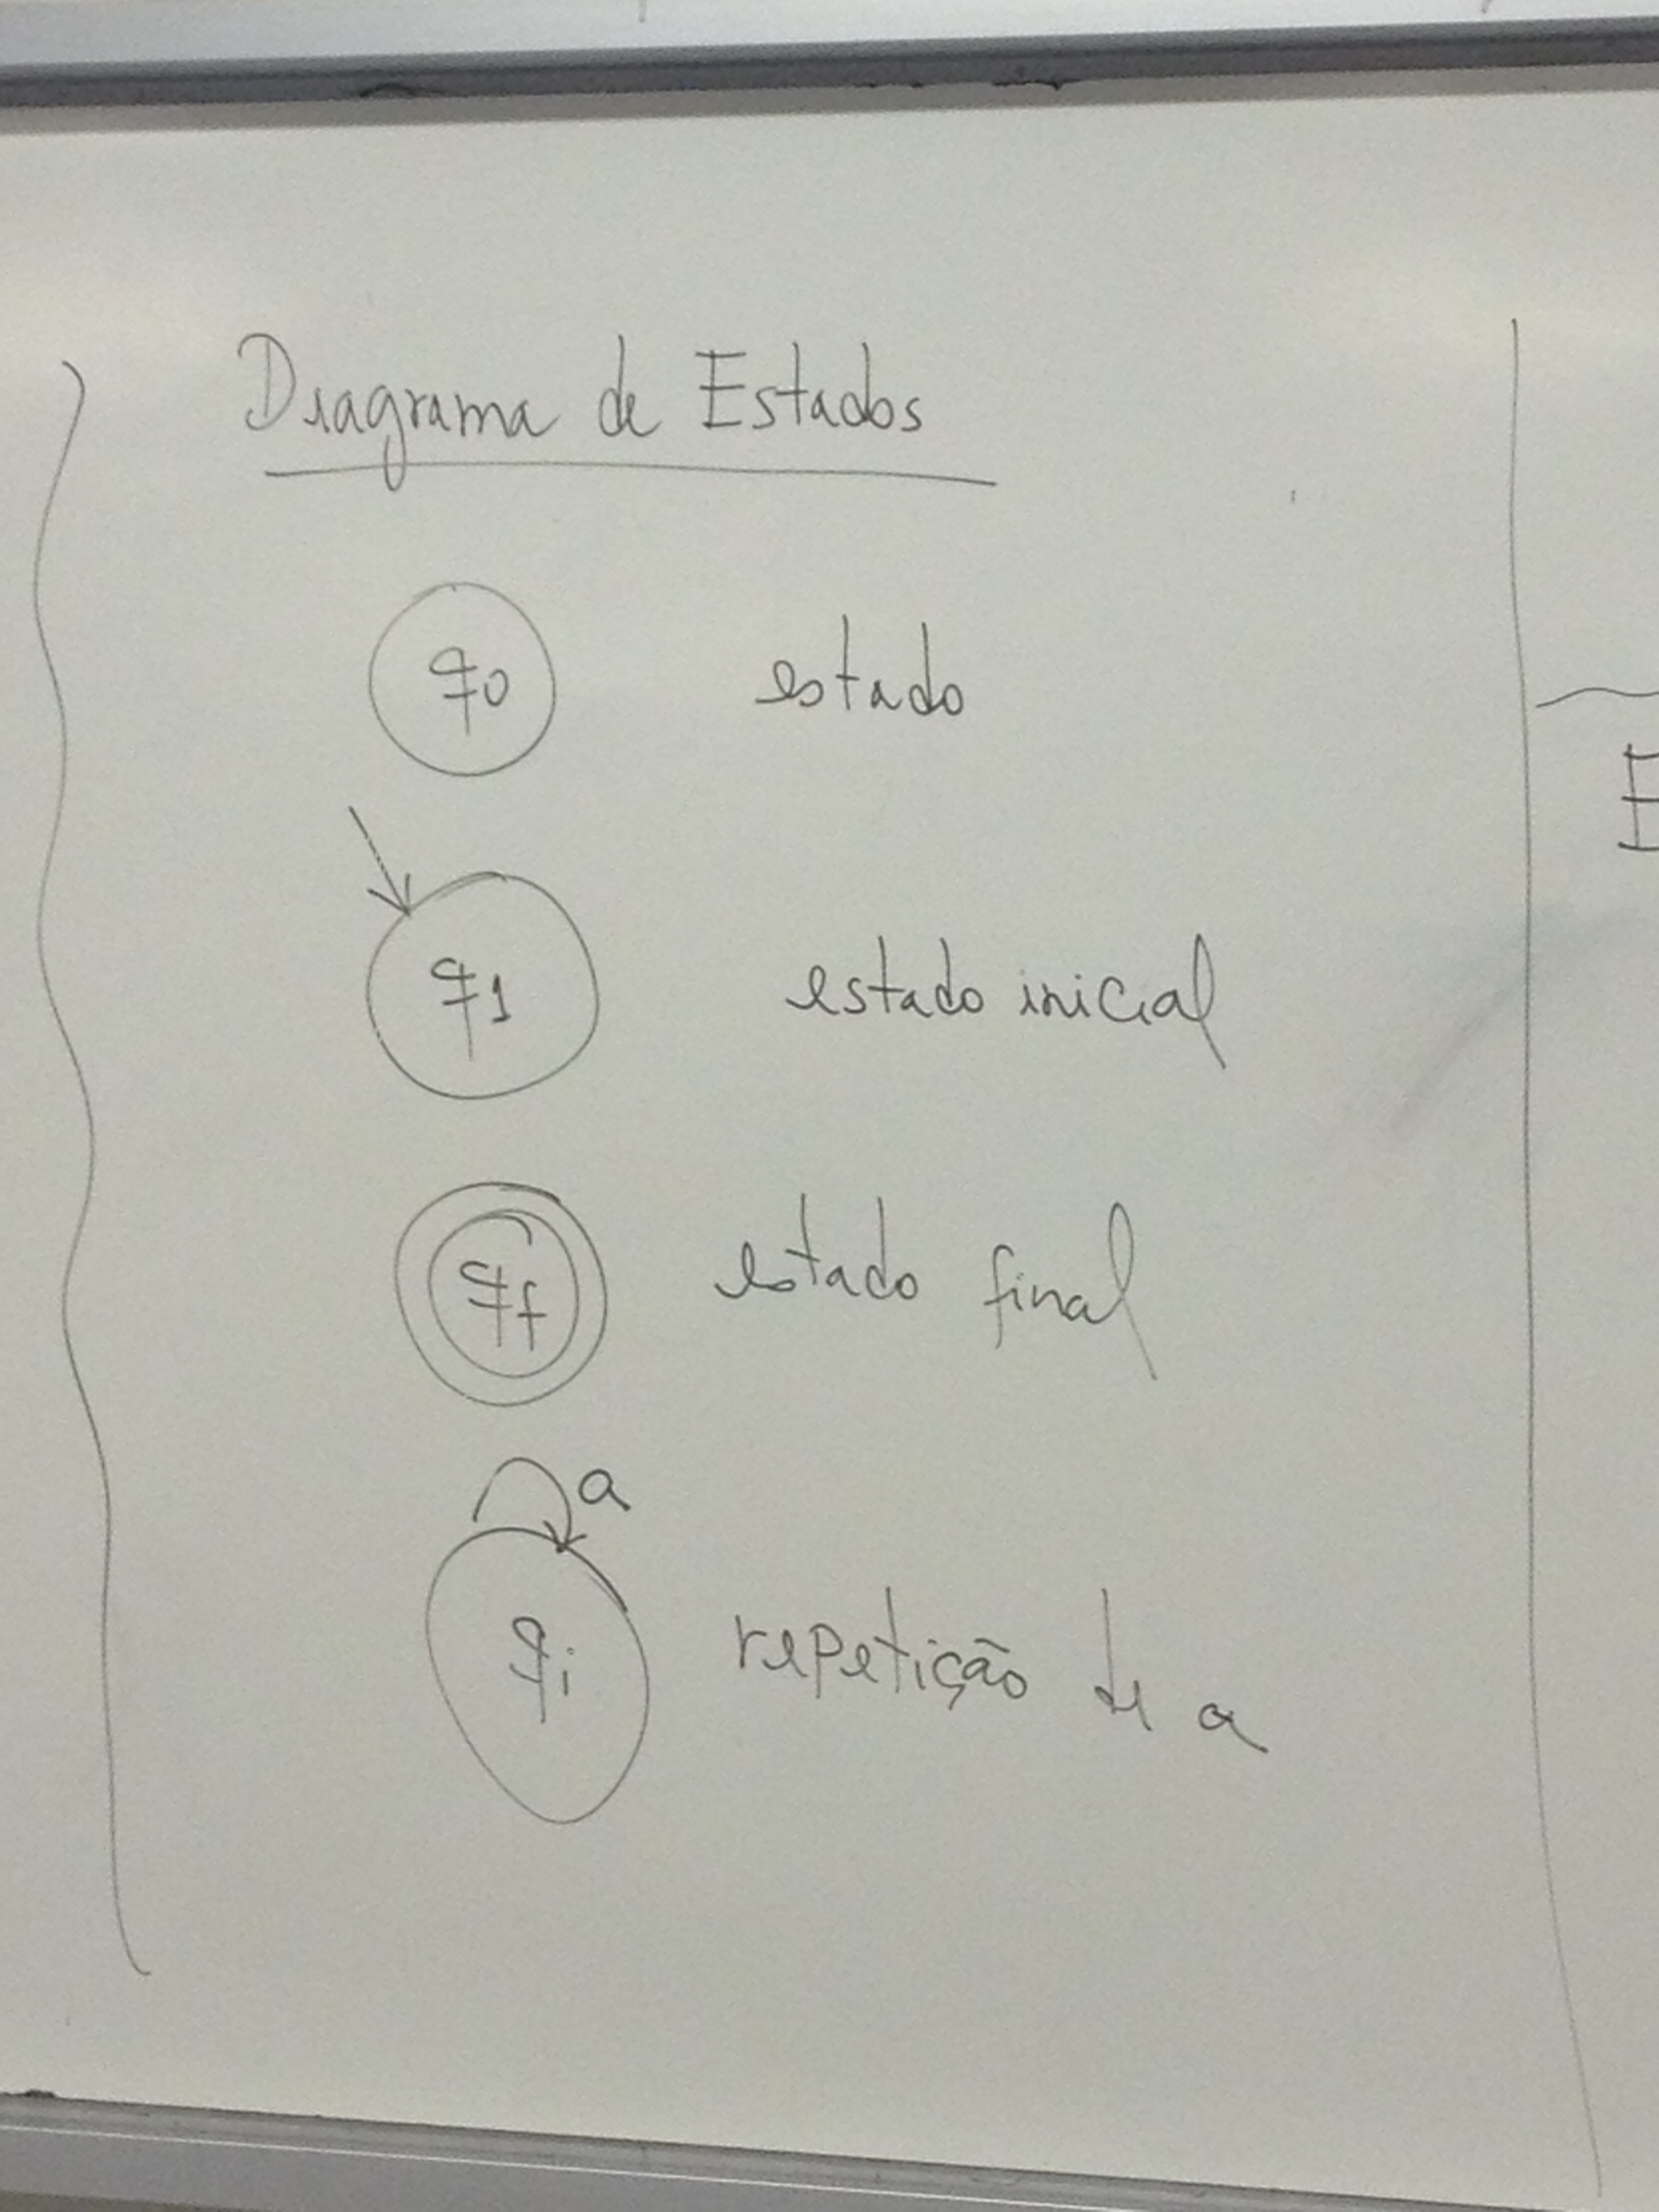 Diagrama de Estados
q0 estado
q1 estado inicial
qf estado final
a
qi repetição de a
E